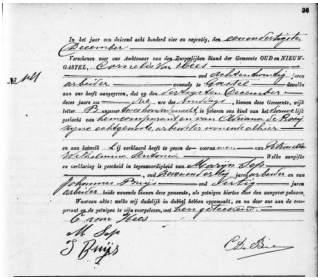 36
In het jaar een duizend acht honderd vier en negentig, den een en dertigsten
December
Verscheen voor ons Ambtenaar van den Burgerlijken Stand der Gemeente OUD en NIEUW-
GASTEL, Cornelis van Hees
oud achtentwintig jaren
arbeider wonende te Gastel die
aan ons heeft aangegeven, dat op den dertigsten December
dezes jaars, ten drie ure des middags, binnen deze Gemeente, wijk
letter B nummer is geboren een kind van het
geslacht van hem comparant en van Adriana de Rooij
zijne echtgenoote arbeidster wonende alhier
en aan hetwelk hij verklaard heeft te geven de voornamen van Petronella
Wilhelmina Antonia. Welke aangifte
en verklaring is geschied in tegenwoordigheid van Marijn Sep
oud zevenendertig jaren arbeider en van
Johannes Buijs oud dertig jaren
arbeider beide wonende dezer gemeente, als getuigen hiertoe door den aangever gekozen,
Waarvan akte: welke wij dadelijk in dubbel hebben opgemaakt, en na deze aan den
comparant en de getuigen te zijn voorgelezen, met hen geteekend.
C van Hees
M Sep
J Buijs